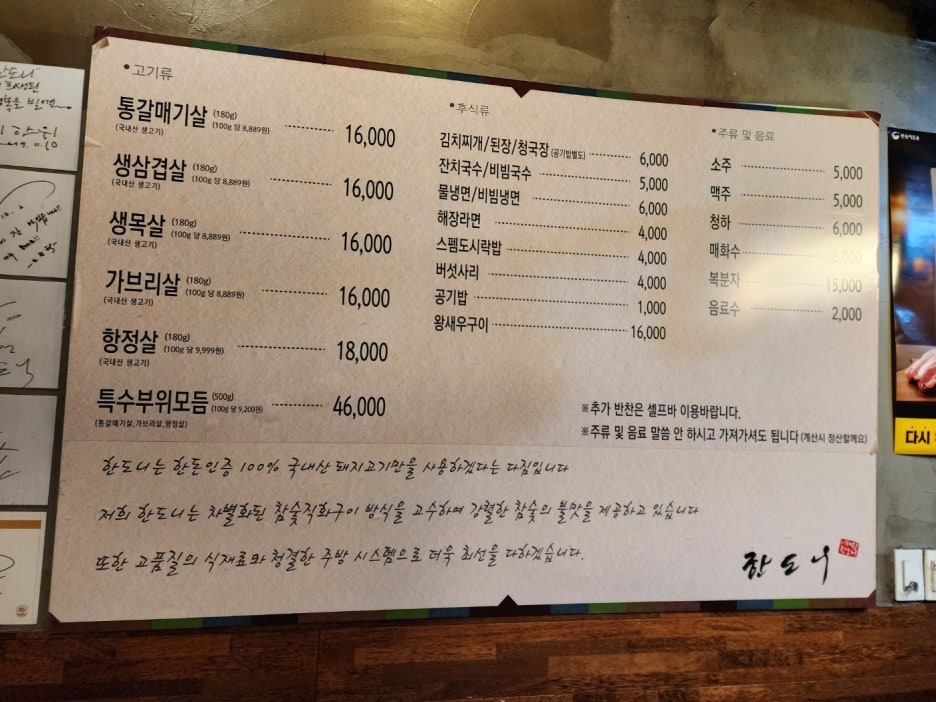 •고기류
통갈매기살 (180g) (100g 당 8,889원) 16,000
(국내산 생고기)
생삼겹살 (180g) (100g 당 8,889원) 16,000
(국내산 생고기)
생목살 (180g) (100g 당 8,889원) 16,000
(국내산 생고기)
가브리살 (180g) (100g 당 8,889원) 16,000
(국내산 생고기)
항정살 (180g) (100g 당 9,999원) 18,000
(국내산 생고기)
특수부위모듬 (500g) (100g 당 9,200원) 46,000
(통갈매기살,가브리살,항정살)
•후식류
김치찌개/된장/청국장 (공기밥별도) 6,000
잔치국수/비빔국수 5,000
물냉면/비빔냉면 6,000
해장라면 4,000
스펨도시락밥 4,000
버섯사리 4,000
공기밥 1,000
왕새우구이 16,000
•주류 및 음료
소주 5,000
맥주 5,000
청하 6,000
매화수 6,000
복분자 15,000
음료수 2,000
※추가 반찬은 셀프바 이용바랍니다.
※주류 및 음료 말씀 안 하시고 가져가셔도 됩니다 (계산시 정산할께요)
한도니는 한돈인증 100% 국내산 돼지고기만을 사용하겠다는 다짐입니다
저희 한도니는 차별화된 참숯직화구이 방식을 고수하며 강렬한 참숯의 불맛을 제공하고 있습니다
또한 고품질의 식재료와 청결한 주방 시스템으로 더욱 최선을 다하겠습니다.
한도니
다시